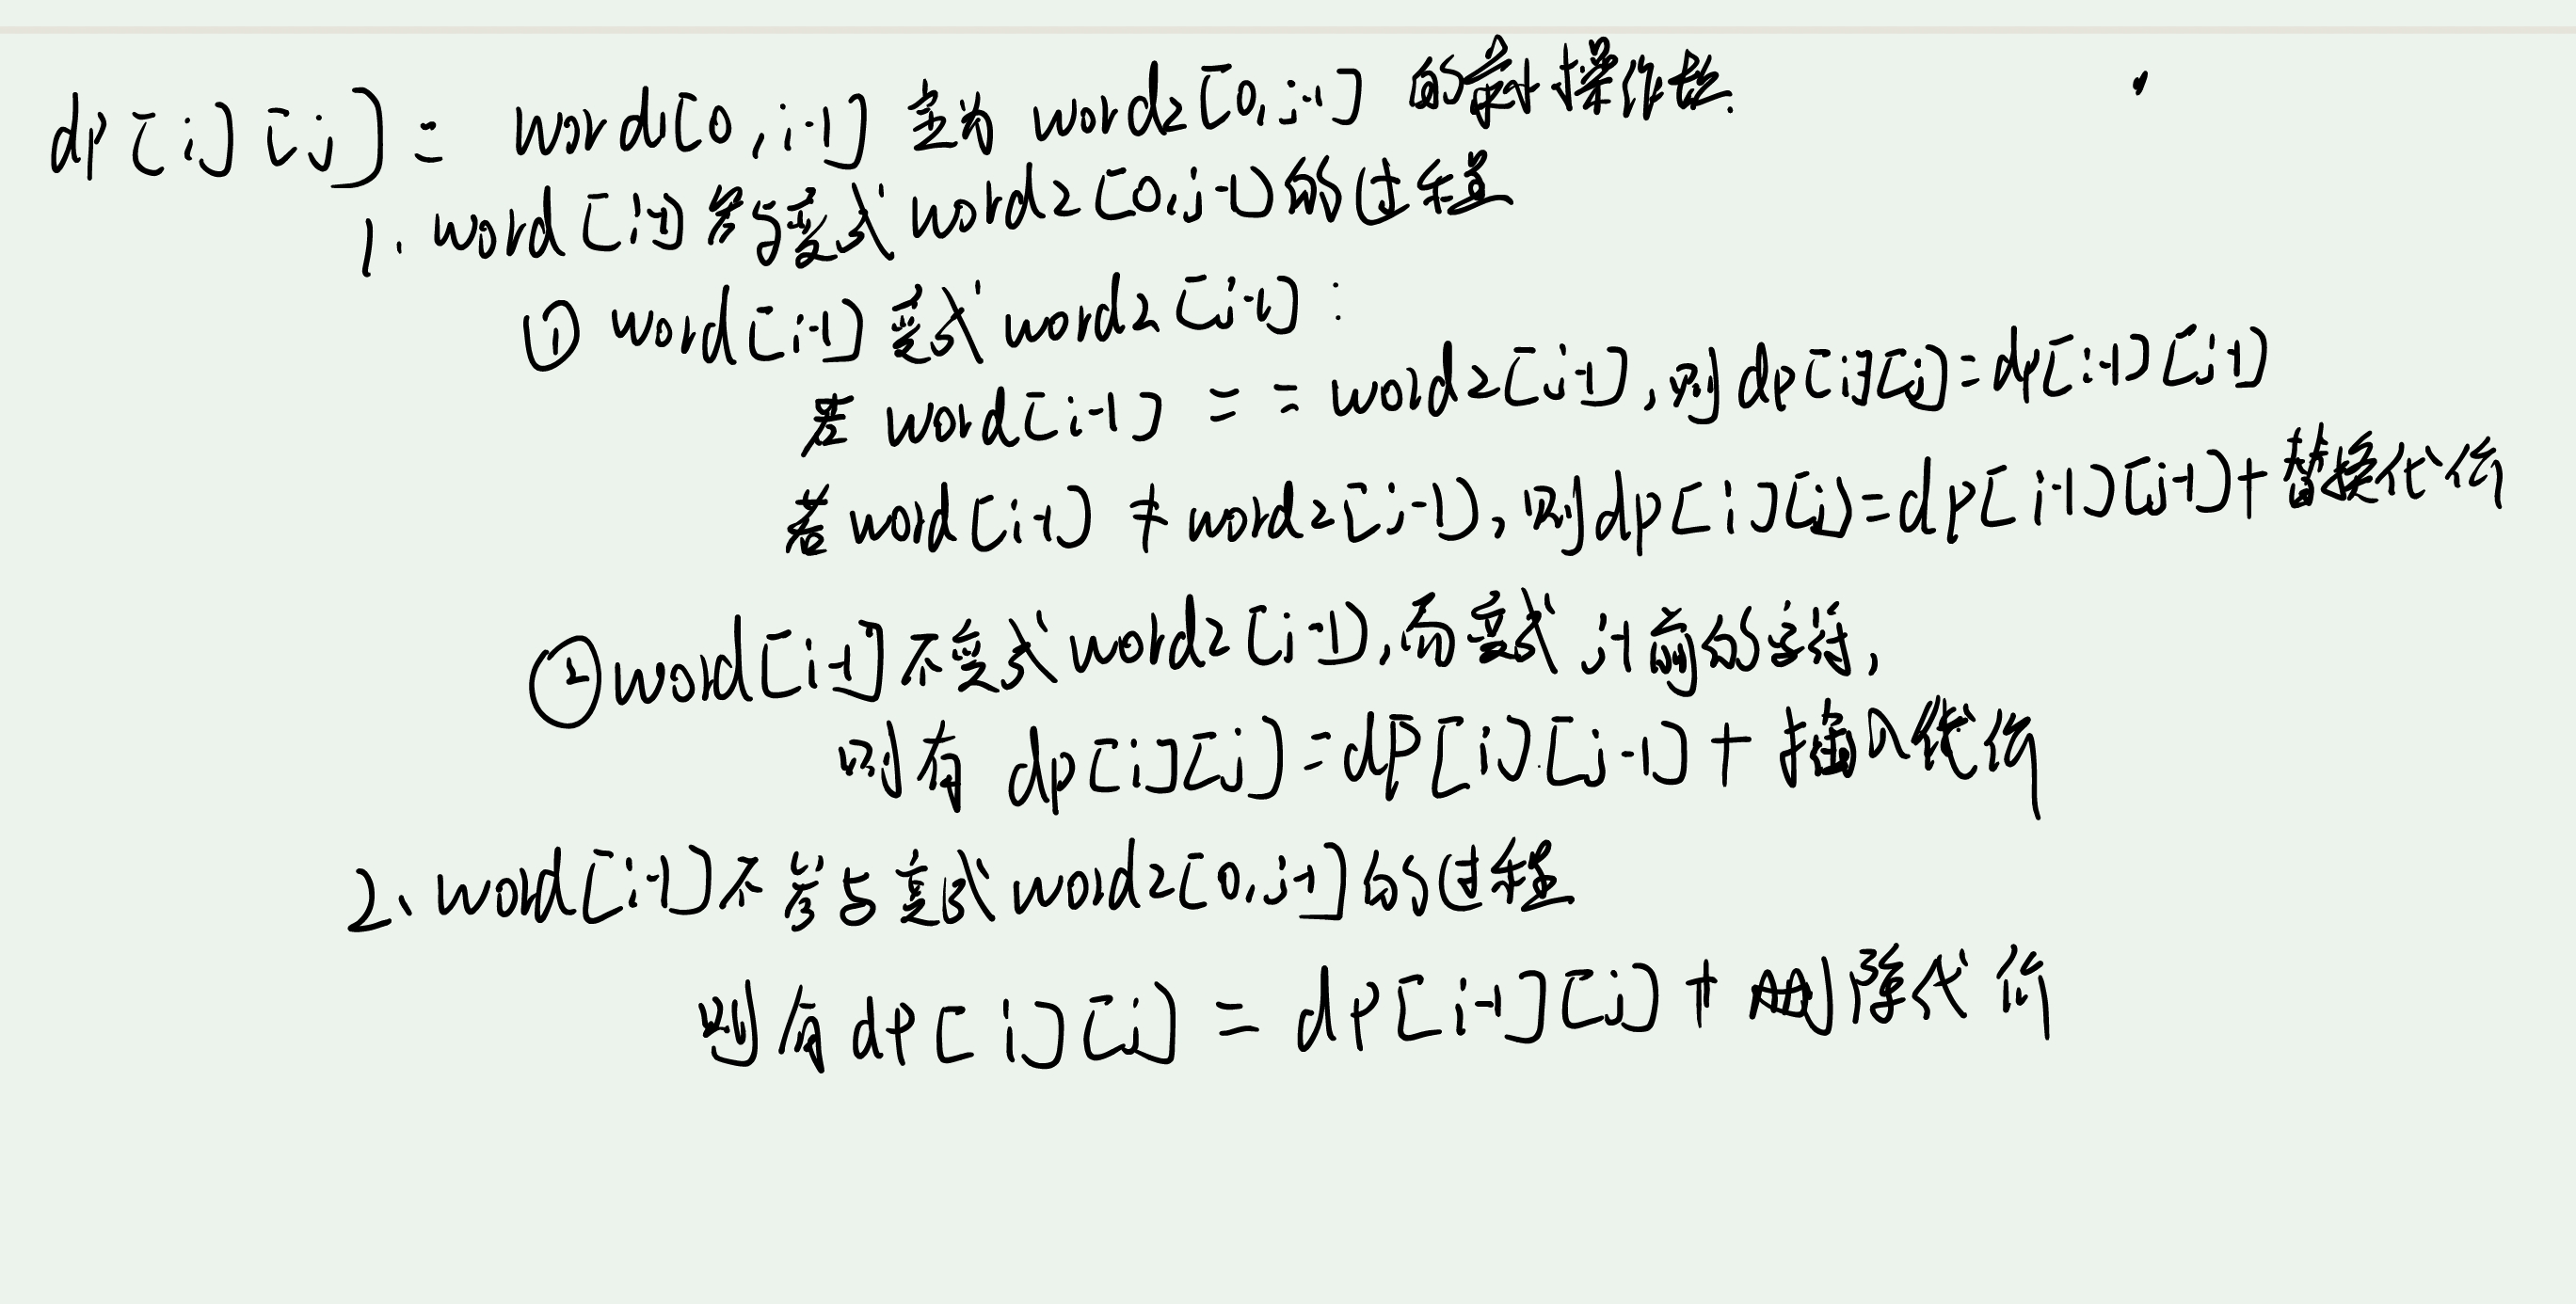 dp[i][j] = word1[0,i-1] 变为 word2[0,j-1] 的最小操作数.
1. word[i-1] 参与变成 word2[0,j-1]的过程
① word[i-1] 变成 word2[j-1]:
若 word[i-1] == word2[j-1],则 dp[i][j]=dp[i-1][j-1]
若 word[i-1] ≠ word2[j-1],则dp[i][j]=dp[i-1][j-1]+替换代价
②word[i-1]不变成word2[j-1],而变成 j-1前的字符,
则有 dp[i][j]=dp[i][j-1]+插入代价
2、word[i-1]不参与变成word2[0,j-1]的过程
则有dp[i][j]=dp[i-1][j]+删除代价